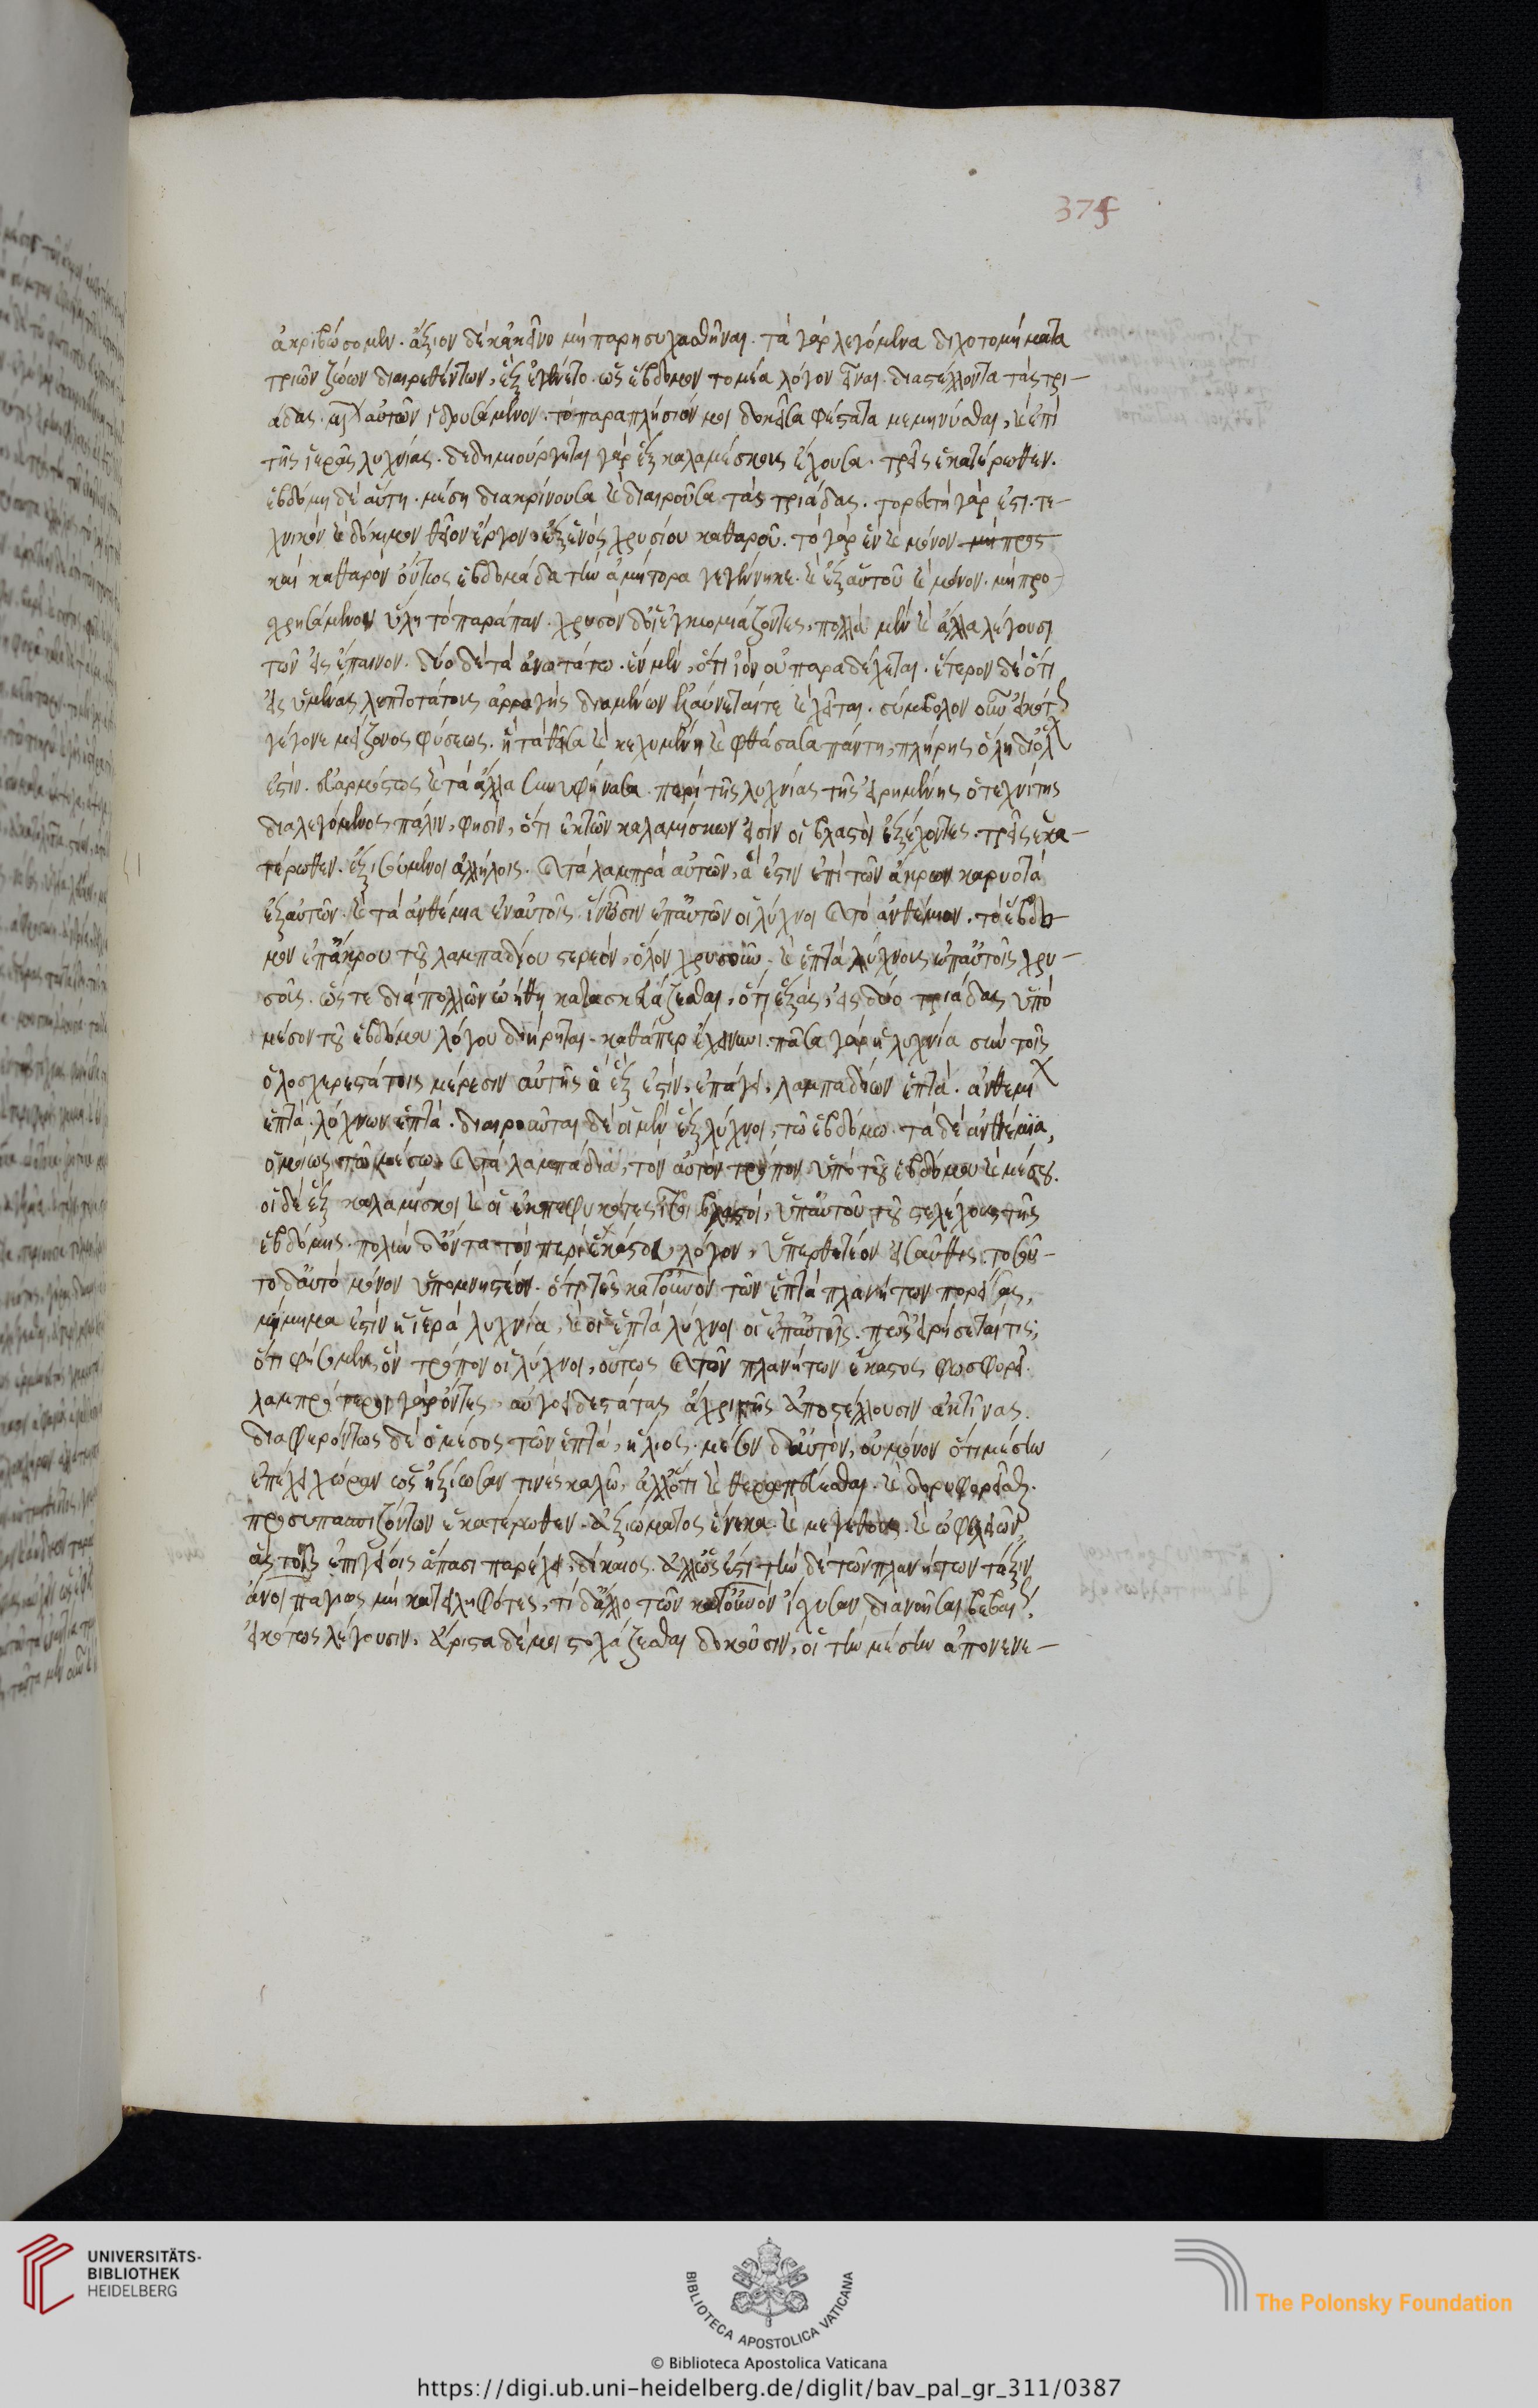 374
ἀκριβώσομεν. ἄξιον δὲ κἀκεῖνο μὴ παρησυχασθῆναι. τὰ γὰρ λεγόμενα διχοτομήματα
τριῶν ζώων διαιρεθέντων, ἓξ ἐγένετο. ὡς ἕβδομον τομέα λόγον εἶναι. διαστέλλοντα τὰς τρι-
άδας. μέσον αὐτῶν ἱδρυσάμενον. τὸ παραπλήσιόν μοι δοκεῖ σαφέστατα μεμηνύσθαι, καὶ ἐπὶ
τῆς ἱερᾶς λυχνίας. δεδημιούργηται γὰρ ἓξ καλαμίσκους ἔχουσα. τρεῖς ἑκατέρωθεν.
ἑβδόμη δὲ αὕτη. μέση διακρίνουσα καὶ διαιροῦσα τὰς τριάδας. τορευτὴ γάρ ἐστι. τε-
χνικὸν καὶ δόκιμον θεῖον ἔργον, ἐξ ἑνὸς χρυσίου καθαροῦ. τὸ γὰρ ἓν καὶ μόνον μὴ προς
καὶ καθαρὸν ὄντως ἑβδομάδα τὴν ἀμήτορα γεγέννηκε. καὶ ἐξ αὐτοῦ καὶ μόνον. μὴ προ-
χρησάμενον ὕλη τὸ παράπαν. χρυσὸν δὲ οἱ ἐγκωμιάζοντες, πολλὰ μὲν καὶ ἄλλα λέγουσι
τῶν εἰς ἔπαινον. δύο δὲ τὰ ἀνωτάτω. ἓν μὲν, ὅτι ἰὸν οὐ παραδέχεται. ἕτερον δὲ ὅτι
εἰς ὑμένας λεπτοτάτους ἀρραγὴς διαμένων ἐλαύνεταί τε καὶ χεῖται. σύμβολον οὖν εἰκότως
γέγονε μείζονος φύσεως. ἣ ταθεῖσα καὶ κεχυμένη καὶ φθάσασα πάντη, πλήρης ὅλη δι' ὅλων
ἐστίν. εὐαρμόστως καὶ τὰ ἄλλα συνυφήνασα. περὶ τῆς λυχνίας τῆς εἰρημένης ὁ τεχνίτης
διαλεγόμενος πάλιν, φησὶν, ὅτι ἐκ τῶν καλαμίσκων εἰσὶν οἱ βλαστοὶ ἐξέχοντες. τρεῖς ἑκα-
τέρωθεν. ἐξισούμενοι ἀλλήλοις. καὶ τὰ λαμπρὰ αὐτῶν, ἅ ἐστιν ἐπὶ τῶν ἄκρων καρυωτὰ
ἐξ αὐτῶν. καὶ τὰ ἀνθέμια ἐν αὐτοῖς. ἵν' ὦσιν ἐπ' αὐτῶν οἱ λύχνοι καὶ τὸ ἀνθέμιον. τὸ ἕβδο-
μον ἐπ' ἄκρου τοῦ λαμπαδίου στερεὸν, ὅλον χρυσοῦν. καὶ ἑπτὰ λύχνους ἐπ' αὐτοῖς χρυ-
σοῖς. ὥστε διὰ πολλῶν ἤδη κατασκευάζεσθαι, ὅτι ἑξὰς, εἰς δύο τριάδας ὑπὸ
μέσου τοῦ ἑβδόμου λόγου διῄρηται. καθάπερ ἔχει νυνί. πᾶσα γὰρ ἡ λυχνία σὺν τοῖς
ὁλοσχερεστάτοις μέρεσιν αὐτῆς ἃ ἕξ ἐστιν, ἐπάγη. λαμπαδίων ἑπτὰ. ἀνθεμίων
ἑπτὰ. λύχνων ἑπτὰ. διαιροῦνται δὲ οἱ μὲν ἓξ λύχνοι, τῷ ἑβδόμω. τὰ δὲ ἀνθέμια,
ὁμοίως τῷ μέσω. καὶ τὰ λαμπάδια, τὸν αὐτὸν τρόπον ὑπὸ τοῦ ἑβδόμου καὶ μέσου.
οἱ δὲ ἓξ καλαμίσκοι καὶ οἱ ἐκπεφυκότες ἴσοι βλαστοὶ, ὑπ' αὐτοῦ τοῦ στελέχους τῆς
ἑβδόμης. πολὺν δ' ὄντα τὸν περὶ ἑκάστου λόγον, ὑπερθετέον εἰσαῦθις. τοσοῦ-
το δ' αὐτὸ μόνον ὑπομνηστέον. ὅτι τῆς κατ' οὐρανὸν τῶν ἑπτὰ πλανήτων πορείας,
μίμημά ἐστιν ἡ ἱερὰ λυχνία, καὶ οἱ ἑπτὰ λύχνοι οἱ ἐπ' αὐτῆς. πῶς εἰρήσεται τις;
ὅτι φήσομεν, ὃν τρόπον οἱ λύχνοι, οὕτως καὶ τῶν πλανήτων ἕκαστος φωσφορεῖ.
λαμπρότεροι γὰρ ὄντες, αὐγοειδεστάτας ἄχρι γῆς ἀποστέλλουσιν ἀκτῖνας.
διαφερόντως δὲ ὁ μέσος τῶν ἑπτὰ, ἥλιος. μέσον δ' αὐτὸν, οὐ μόνον ὅτι μέσην
ἐπέχει χώραν ὡς ἠξίωσάν τινες καλῶ, ἀλλ' ὅτι καὶ θεραπεύεσθαι. καὶ δορυφορεῖσθαι.
πρὸς ὑπασπιζόντων ἑκατέρωθεν. ἀξιώματος ἕνεκα. καὶ μεγέθους. καὶ ὠφελειῶν,
ἃς τοῖς ἐπιγείοις ἅπασι παρέχει, δίκαιος. ἄλλως ἐστί. τὴν δὲ τῶν πλανήτων τάξιν
ἄνοι παγίως μὴ κατειληφότες, τί δ' ἄλλο τῶν κατ' οὐνὸν ἴσχυσαν διανοῆσαι βεβαίως,
εἰκότως λέγουσιν. ἄριστα δέ μοι στοχάζεσθαι δοκοῦσιν, οἱ τὴν μέσην ἀπονενε-
UNIVERSITÄTS-
BIBLIOTHEK
HEIDELBERG
BIBLIOTECA APOSTOLICA VATICANA
The Polonsky Foundation
© Biblioteca Apostolica Vaticana
https://digi.ub.uni-heidelberg.de/diglit/bav_pal_gr_311/0387